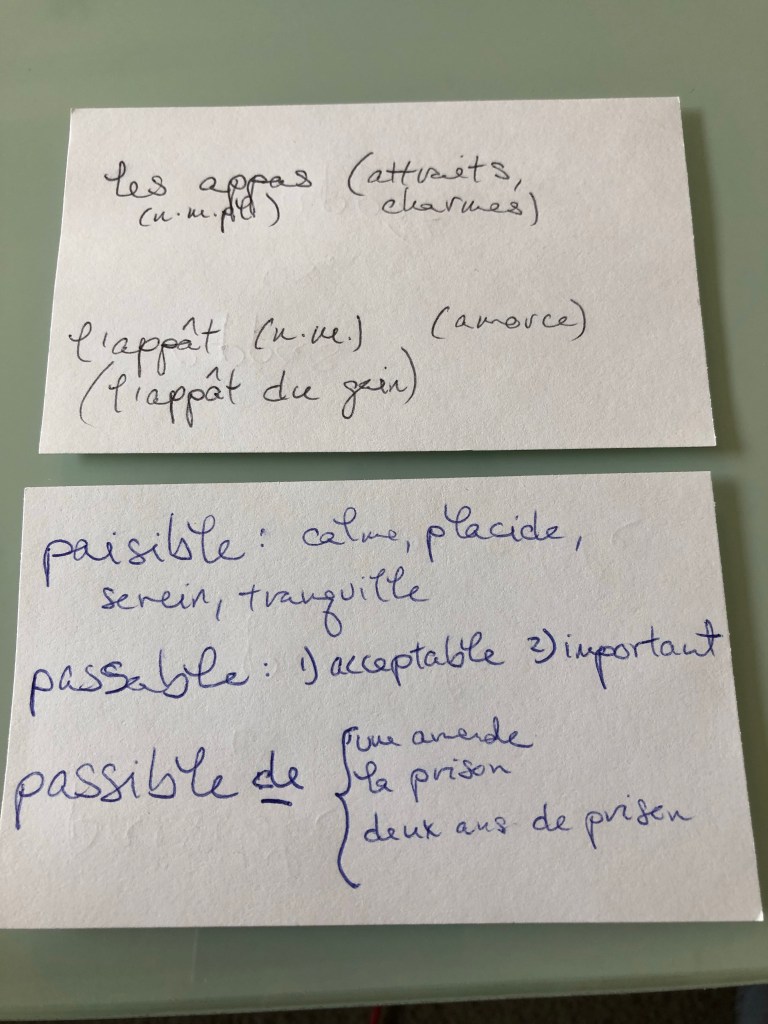 les appas (attraits,
(n.m.pl) charmes)
l'appât (n.m.) (amorce)
(l'appât du gain)
paisible : calme, placide,
serein, tranquille
passable : 1) acceptable 2) important
passible de { une amende
la prison
deux ans de prison